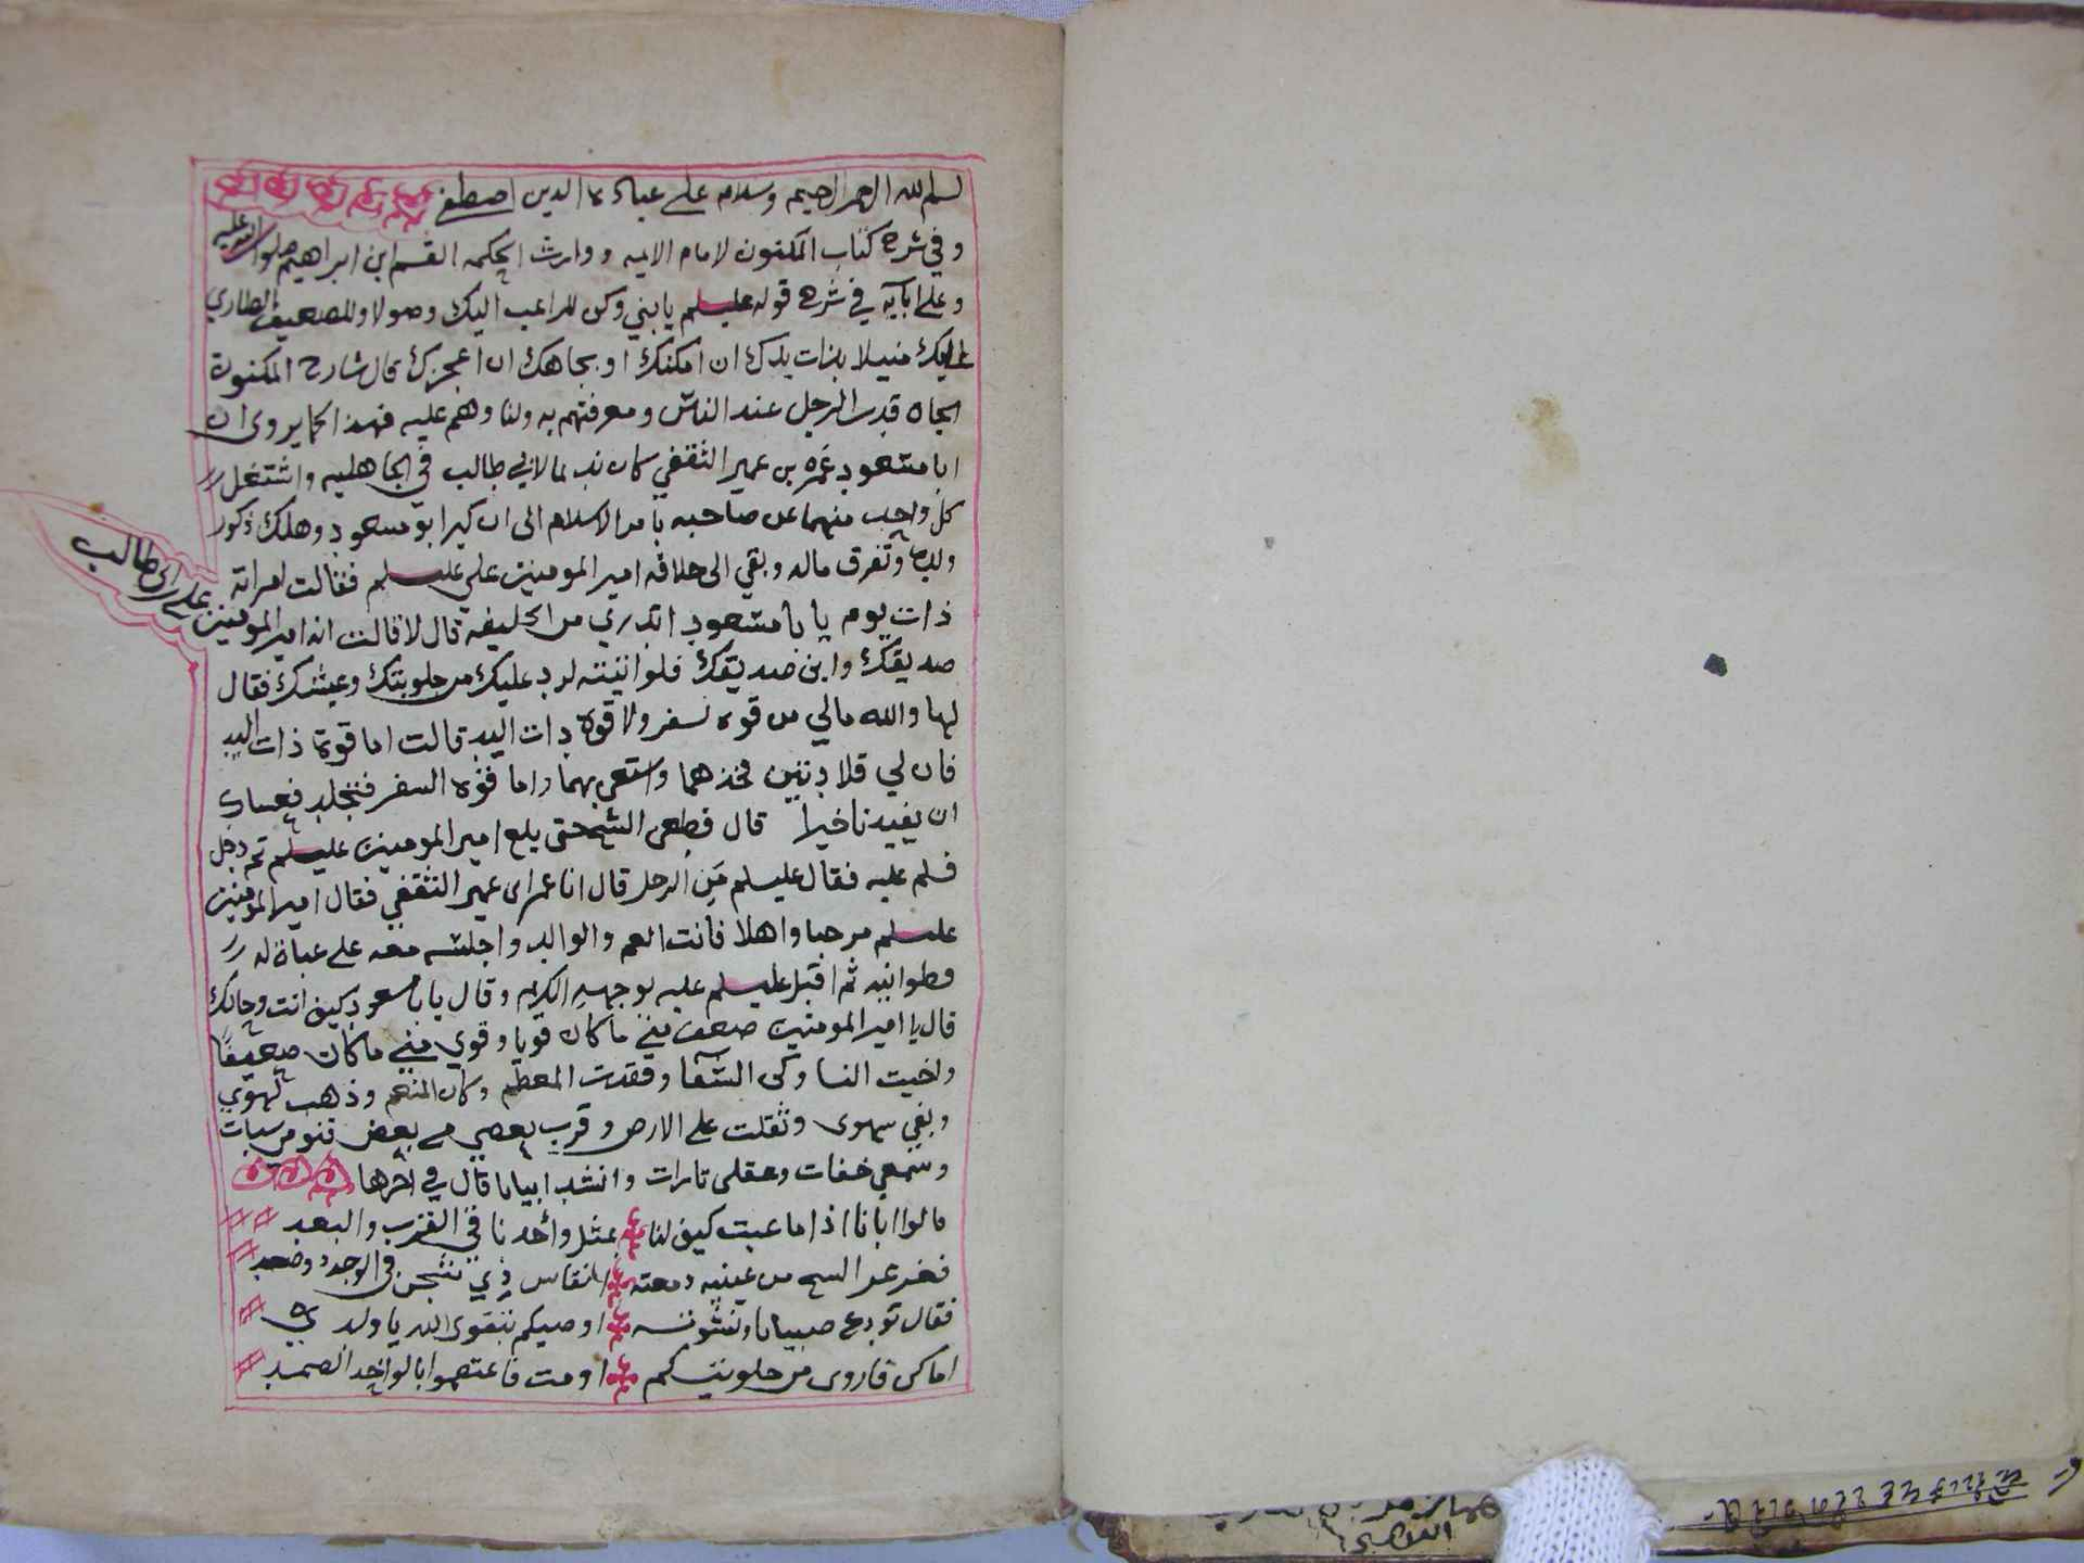 بسم الله الرحمن الرحيم وسلام على عباده الدين اصطفى
وفي شرح كتاب المكنون لامام الايمه ووارث الحكمه القسم ابن ابراهيم صلوات الله عليه
وعلى ابآيه في شرح قوله عليسلم يابني وكن للراغب اليك وصولا وللضعيف الطاري
عليك منيلا بذات يدك ان امكنك او بجاهك ان اعجزك قال شارح المكنون
الجاه قدر الرجل عند الناس ومعرفتهم به ولنا وهم عليه فهذا كما يروى ان
ابا مسعود عمره بن عمير الثقفي كان نديما لابي طالب في الجاهليه واشتغل
كل واحد منهما عن صاحبه بامر الاسلام الى ان كبر ابو مسعود وهلك ذكور
ولده وتفرق ماله وبقي الى خلافه امير المومنين علي عليسلم فقالت امراته
ذات يوم يا با مسعود اتدري من الخليفه قال لا قالت انه امير المومنين علي ابن ابي طالب
صديقك وابن صديقك فلو اتيته لرد عليك من حلوبتك وعيشك فقال
لها والله مالي من قوه سفر ولا قوة ذات اليد قالت اما قوة ذات اليد
فان لي قلادتين فخذهما واستعن بهما واما قوه السفر فتجلد فعساك
ان يفيدنا خيرا قال فطعن الشيخ حتى بلغ امير المومنين عليسلم ثم دخل
فسلم عليه فقال عليسلم مَنِ الرجل قال انا عمر ابن عمير الثقفي فقال امير المومنين
عليسلم مرحبا واهلا فانت العم والوالد واجلسه معه على عباة له
قطوانيه ثم اقبل عليسلم عليه بوجهه الكريم وقال يا با مسعود كيف انت وحالك
قال يا امير المومنين ضعف مني ما كان قويا وقوي مني ما كان ضعيفا
واجيت النسا وكن الشفا وفقدت المطعم وكان المنعم وذهب لهوي
وبقي سهوى وثقلت على الارض وقرب بعضي من بعض فنومي سبات
وسمعي خفات وعقلي تارات وانشد ابياتا قال في اخرها
قالوا ابانا اذا ما غبت كيف لنا بمثل واحدنا في القرب والبعد
فغرغر الشيخ من عينيه دمعته انفاس ذي شجن في الوجد وصعد
فقال تودع صبيانا ونسوته اوصيكم بتقوى الله يا ولدي
اما كن فاروى من حلوبتكم او مت فاعتصموا بالواحد الصمد